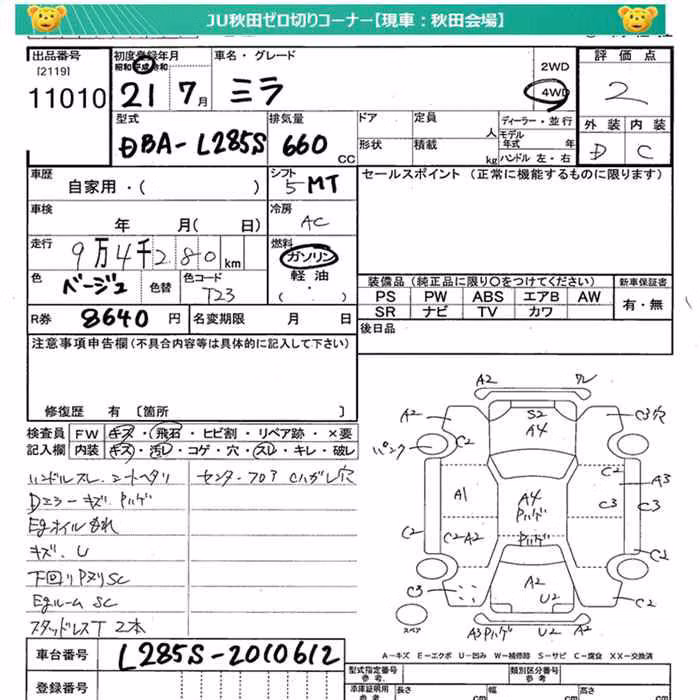 JU秋田ゼロ切りコーナー【現車：秋田会場】
出品番号
[2119]
11010
初度登録年月
昭和 平成 令和
21年 7月
車名・グレード
ミラ
2WD
4WD
評価点
2
外装 内装
D C
型式
DBA-L285S
排気量
660 CC
ドア
形状
定員
人
積載
kg
ディーラー・並行
モデル年式 年
ハンドル 左・右
車歴
自家用・( )
シフト
5MT
セールスポイント (正常に機能するものに限ります)
車検
年 月( 日)
冷房
AC
走行
9万4千280km
燃料
ガソリン
軽油
( ・ )
色
ベージュ
色替
色コード
T23
装備品 (純正品に限り○をつけてください)
新車保証書
PS PW ABS エアB AW
有・無
SR ナビ TV カワ
R券 8640円
名変期限 月 日
後日品
注意事項申告欄(不具合内容等は具体的に記入して下さい)
修復歴 有 [箇所 ]
検査員 FW キズ・飛石・ヒビ割・リペア跡・×要
記入欄 内装 キズ・汚レ・コゲ・穴・スレ・キレ・破レ
ハンドルスレ シートヘタリ
センターフロア Cハガレ穴
Dミラーキズ Pハゲ
Egオイルもれ
キズ.U
下回りPヌリSC
EgルームSC
スタッドレスT 2本
A2
ワレ
A2
S2
A4
C3穴
パンク
C2
C2
A3
A1
A4
Pハゲ
C3
C3
C2
C2
A2
Pハゲ
C2
C3
A2
U2
C2
スペア
A3Pハゲ
U2
A2
A－キズ E－エクボ U－凹み W－補修跡 S－サビ C－腐食 XX－交換済
車台番号
L285S-2010612
登録番号
型式指定番号
参考
類別区分番号
参考
車庫証明用
参考
長さ cm
幅 cm
高さ cm